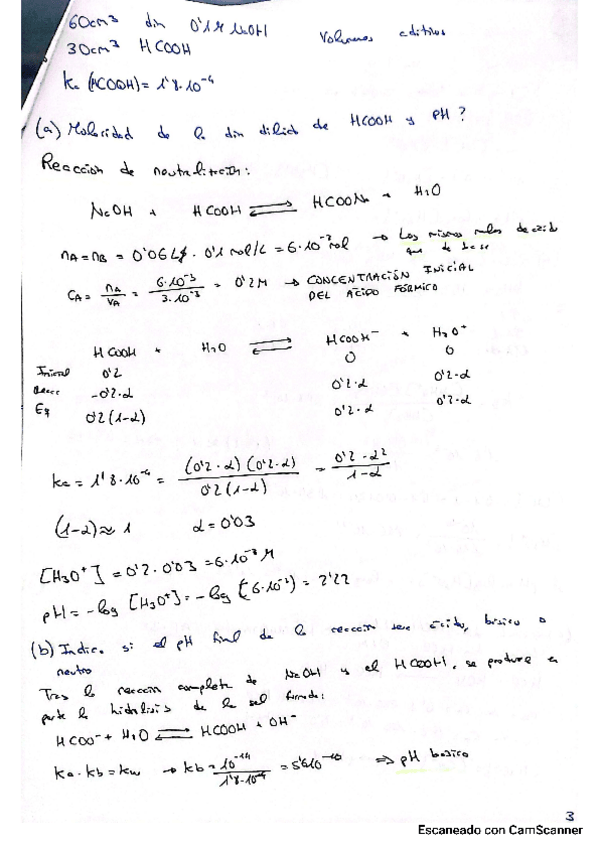 60cm³ din 0'1M NaOH Volumenes aditivos
30cm³ HCOOH
Ka (HCOOH) = 1'8·10⁻⁴
(a) Molaridad de la din dilida de HCOOH y pH?
Reaccion de neutralización:
NaOH + HCOOH ⇌ HCOONa + H2O
nA = nB = 0'06L · 0'1 mol/L = 6·10⁻³ mol → Los mismos moles de ácido que de base
CA = nA/VA = 6·10⁻³/3·10⁻³ = 0'2M → CONCENTRACIÓN INICIAL DEL ÁCIDO FÓRMICO
HCOOH + H2O ⇌ HCOOH⁻ + H3O⁺
Inicial 0'2 0 0
-0'2·α 0'2·α 0'2·α
Eq 0'2(1-α) 0'2·α 0'2·α
Ka = 1'8·10⁻⁴ = (0'2·α)(0'2·α)/0'2(1-α) = 0'2·α²/1-α
(1-α) ≈ 1 α = 0'03
[H3O⁺] = 0'2·0'03 = 6·10⁻³ M
pH = -log [H3O⁺] = -log (6·10⁻³) = 2'22
(b) Indica si el pH final de la reacción sera ácido, básico o
neutro
Tras la reacción completa de NaOH y el HCOOH, se produce en
parte la hidrólisis de la sal formada:
HCOO⁻ + H2O ⇌ HCOOH + OH⁻
Ka · Kb = Kw → Kb = 10⁻¹⁴/1'8·10⁻⁴ = 5'6·10⁻¹⁰ ⇒ pH basico
3
Escaneado con CamScanner